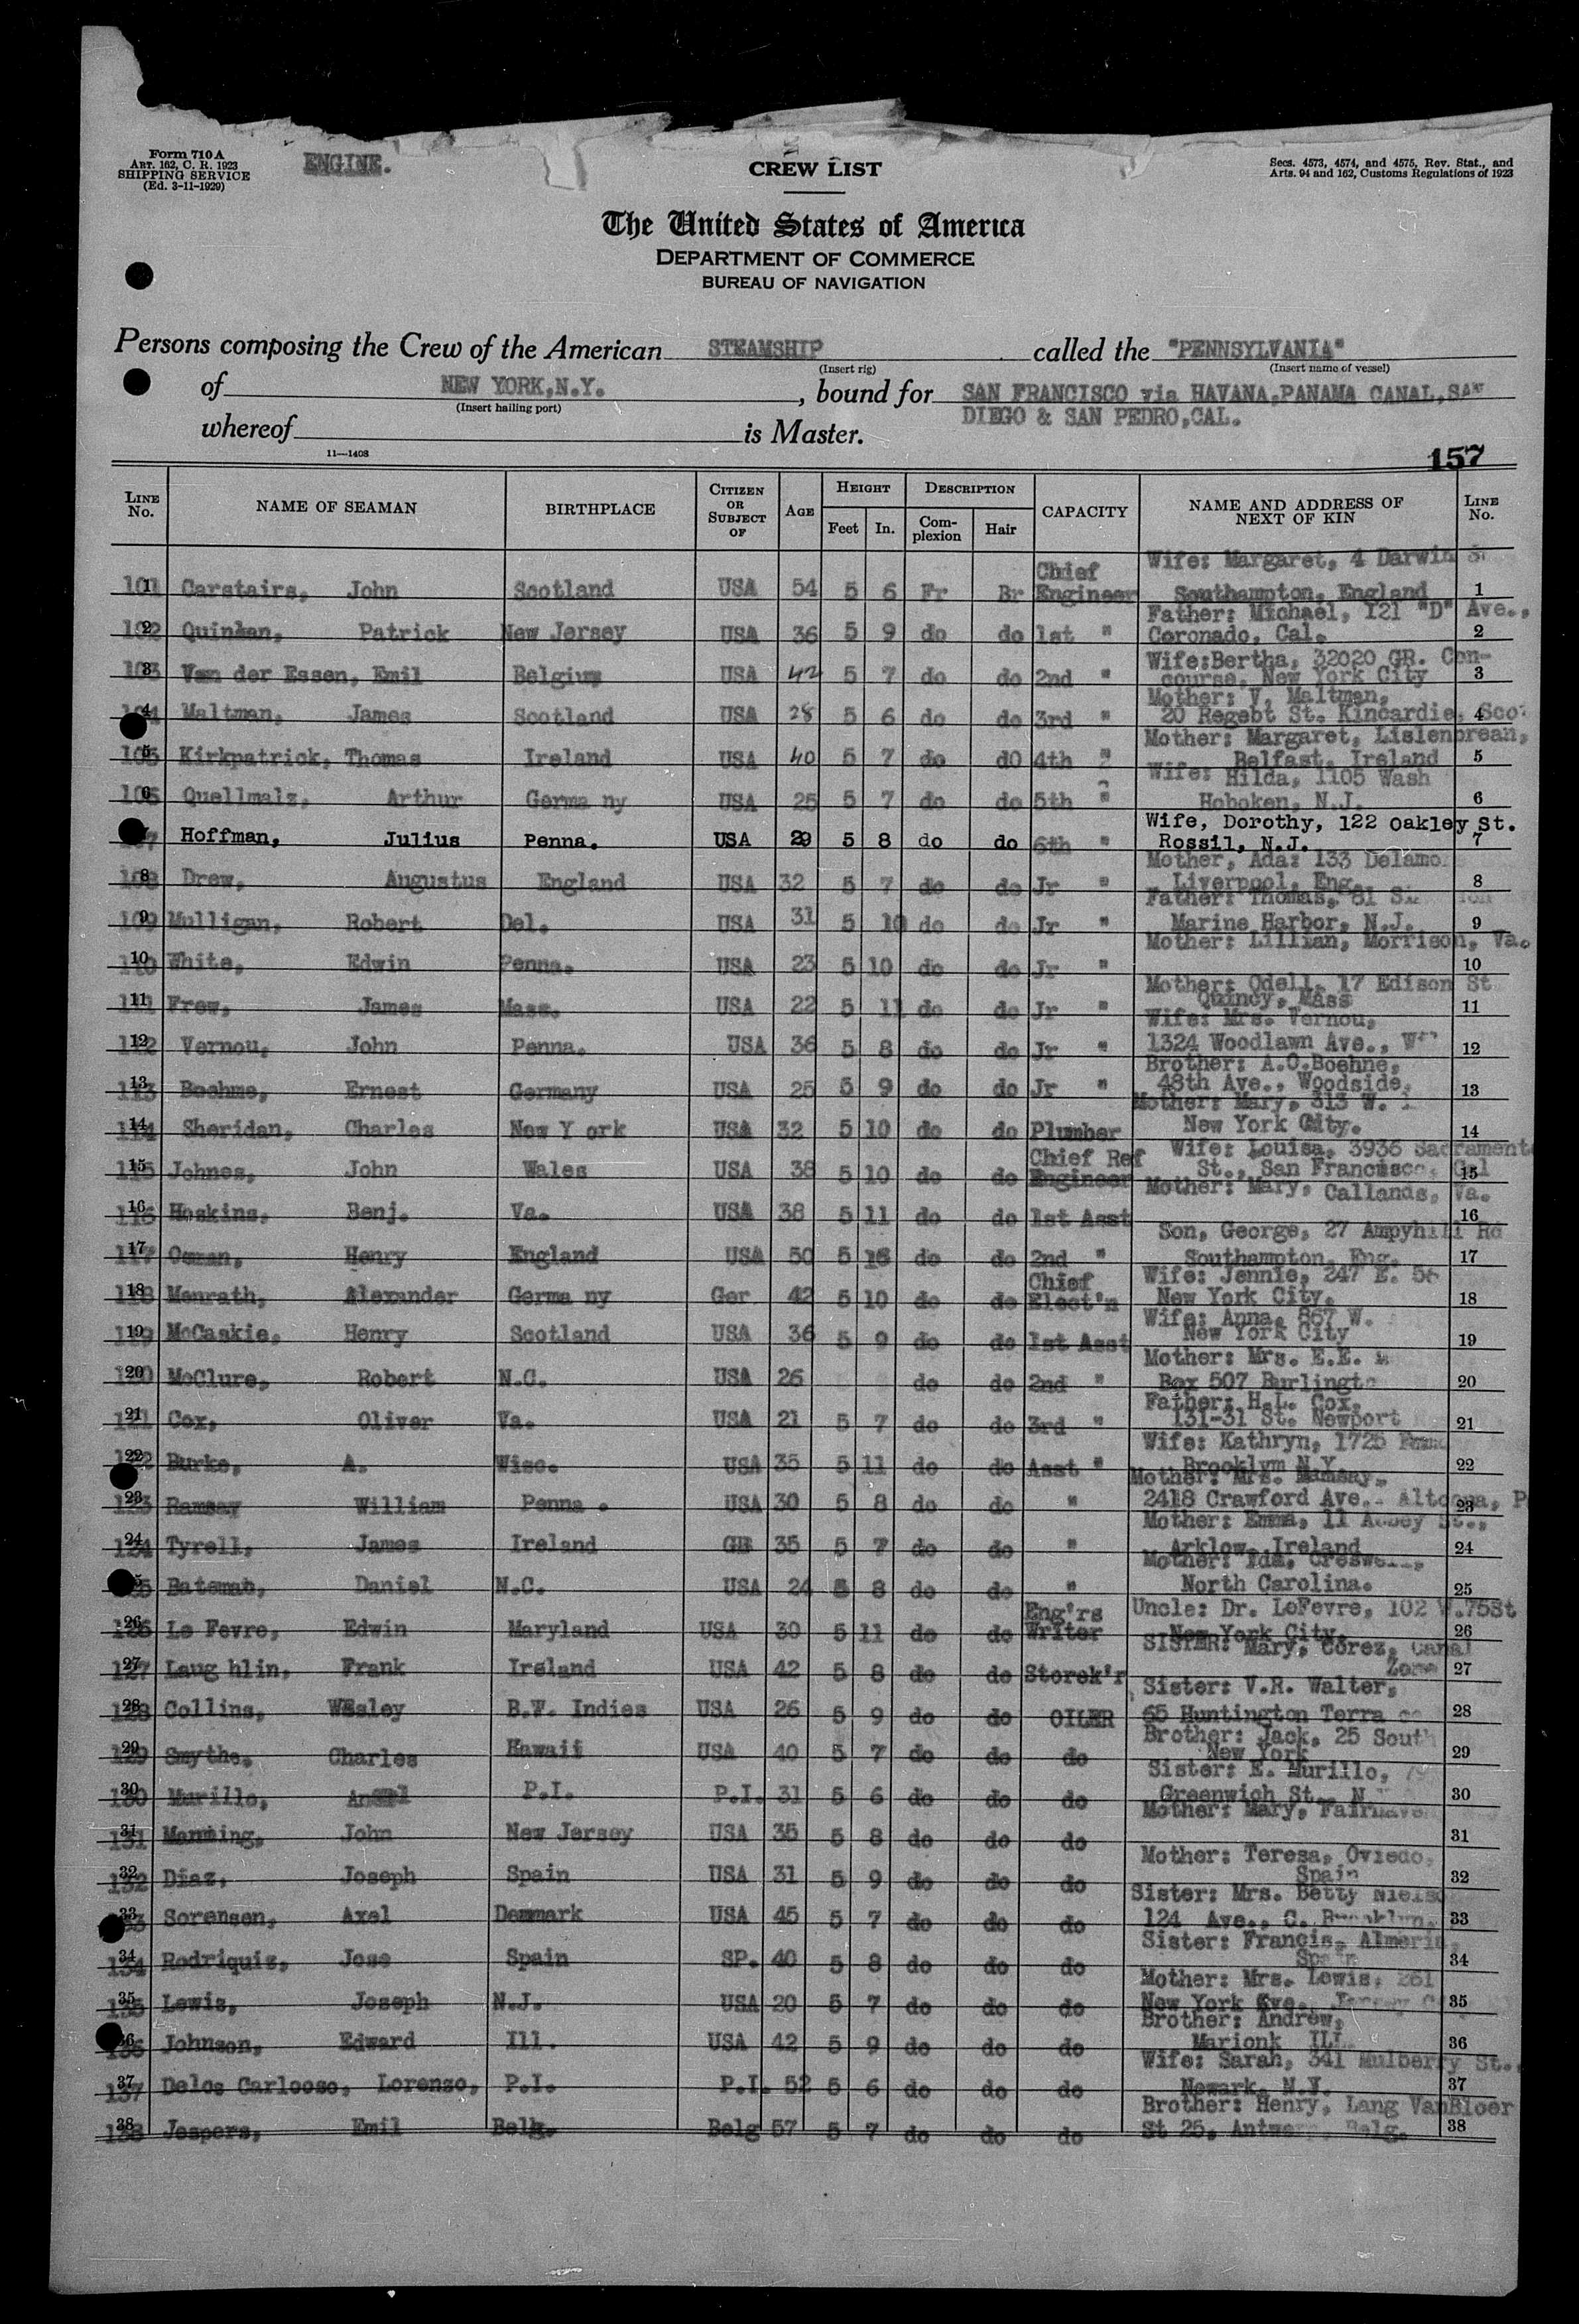 Form 710 A
ART. 162, C. R. 1923
SHIPPING SERVICE
(Ed. 3-11-1929)
ENGINE.
CREW LIST
Secs. 4573, 4574, and 4575, Rev. Stat., and
Arts. 94 and 162, Customs Regulations of 1923
The United States of America
DEPARTMENT OF COMMERCE
BUREAU OF NAVIGATION
Persons composing the Crew of the American STEAMSHIP called the "PENNSYLVANIA"
(Insert rig) (Insert name of vessel)
of NEW YORK,N.Y. , bound for SAN FRANCISCO via HAVANA,PANAMA CANAL,SAN
(Insert hailing port) DIEGO & SAN PEDRO,CAL.
whereof is Master.
11—1408
157
LINE No. NAME OF SEAMAN BIRTHPLACE CITIZEN OR SUBJECT OF AGE HEIGHT Feet In. DESCRIPTION Complexion Hair CAPACITY NAME AND ADDRESS OF NEXT OF KIN LINE No.
Wife: Margaret, 4 Darwin
101 1 Carstairs, John Scotland USA 54 5 6 Fr Br Chief Engineer Southampton, England 1
Father: Michael, 121 "D" Ave.,
102 2 Quinlan, Patrick New Jersey USA 36 5 9 do do 1st " Coronado, Cal. 2
Wife:Bertha, 32020 GR. Con-
103 3 Van der Essen, Emil Belgium USA 42 5 7 do do 2nd " course, New York City 3
Mother: V. Maltman,
104 4 Maltman, James Scotland USA 28 5 6 do do 3rd " 20 Regebt St. Kincardie, Scot 4
Mother: Margaret, Lislenbrean,
105 5 Kirkpatrick, Thomas Ireland USA 40 5 7 do dO 4th " Belfast, Ireland 5
Wife: Hilda, 1105 Wash
106 6 Quellmalz, Arthur Germa ny USA 25 5 7 do do 5th " Hoboken, N.J. 6
Wife, Dorothy, 122 Oakley St.
107 7 Hoffman, Julius Penna. USA 29 5 8 do do 6th " Rossil, N.J. 7
Mother, Ada: 133 Delamo
108 8 Drew, Augustus England USA 32 5 7 do do Jr " Liverpool, Eng. 8
Father: Thomas, 81
109 9 Mulligan, Robert Del. USA 31 5 10 do do Jr " Marine Harbor, N.J. 9
Mother: Lillian, Morrison, Va.
110 10 White, Edwin Penna. USA 23 5 10 do do Jr " 10
Mother: Odell, 17 Edison St
111 11 Frew, James Mass. USA 22 5 11 do do Jr " Quincy, Mass 11
Wife: Mrs. Vernou,
112 12 Vernou, John Penna. USA 36 5 8 do do Jr " 1324 Woodlawn Ave., 12
Brother: A.O.Boehne,
113 13 Boehme, Ernest Germany USA 25 5 9 do do Jr " 48th Ave., Woodside, 13
Mother: Mary, 313 W.
114 14 Sheridan, Charles New Y ork USA 32 5 10 do do Plumber New York City. 14
Wife: Louisa, 3936 Sacramento
115 15 Johnes, John Wales USA 38 5 10 do do Chief Ref Engineer St., San Francisco, Cal 15
Mother: Mary, Callands, Va.
116 16 Hoskins, Benj. Va. USA 38 5 11 do do 1st Asst 16
Son, George, 27 Ampyhill Rd
117 17 Osman, Henry England USA 50 5 do do 2nd " Southampton, Eng. 17
Wife: Jennie, 247 E. 58
118 18 Menrath, Alexander Germa ny Ger 42 5 10 do do Chief Elect'n New York City. 18
Wife: Anna, 867 W.
119 19 McCaskie, Henry Scotland USA 36 5 9 do do 1st Asst New York City 19
Mother: Mrs. E.E.
120 20 McClure, Robert N.C. USA 26 do do 2nd " Box 507 Burlingto 20
Father: H.L. Cox,
121 21 Cox, Oliver Va. USA 21 5 7 do do 3rd " 131-31 St. Newport 21
Wife: Kathryn, 1725
122 22 Burke, A. Wisc. USA 35 5 11 do do Asst " Brooklym N.Y. 22
Mother: Mrs. Ramsay,
123 23 Ramsay William Penna . USA 30 5 8 do do " 2418 Crawford Ave., Altoona, P 23
Mother: Emma, 11 Abbey St.,
124 24 Tyrell, James Ireland GB 35 5 7 do do " Arklow, Ireland 24
Mother: Ida, Creswell,
125 Bateman, Daniel N.C. USA 24 5 8 do do " North Carolina. 25
Uncle: Dr. LeFevre, 102 W.75St
126 26 Le Fevre, Edwin Maryland USA 30 5 11 do do Eng'rs Writer New York City. 26
SISTER: Mary, Corez, Canal
127 27 Laug hlin, Frank Ireland USA 42 5 8 do do Storek'r Zone 27
Sister: V.R. Walter,
128 28 Collins, WEsley B.W. Indies USA 26 5 9 do do OILER 65 Huntington Terra ce 28
Brother: Jack, 25 South
129 29 Smythe, Charles Hawaii USA 40 5 7 do do do New York 29
Sister: E. Murillo,
130 30 Murillo, Angel P.I. P.I. 31 5 6 do do do Greenwich St., N 30
Mother: Mary, Fairhaven
131 31 Manning, John New Jersey USA 35 5 8 do do do 31
Mother: Teresa, Oviedo,
132 32 Diaz, Joseph Spain USA 31 5 9 do do do Spain 32
Sister: Mrs. Betty Nielso
133 33 Sorensen, Axel Denmark USA 45 5 7 do do do 124 Ave., C. Brooklyn, 33
Sister: Francis, Almeria,
134 34 Rodriquiz, Jose Spain SP. 40 5 8 do do do Spain 34
Mother: Mrs. Lewis, 261
135 35 Lewis, Joseph N.J. USA 20 5 7 do do do New York Eve., Jersey 35
Brother: Andrew,
136 36 Johnson, Edward Ill. USA 42 5 9 do do do Marionk ILL 36
Wife: Sarah, 341 Mulberry St.,
137 37 Delos Carlooso, Lorenzo, P.I. P.I. 52 5 6 do do do Newark, N.J. 37
Brother: Henry, Lang VanBloer
138 38 Jespers, Emil Belg. Belg 57 5 7 do do do St 25, Antwerp, Belg. 38